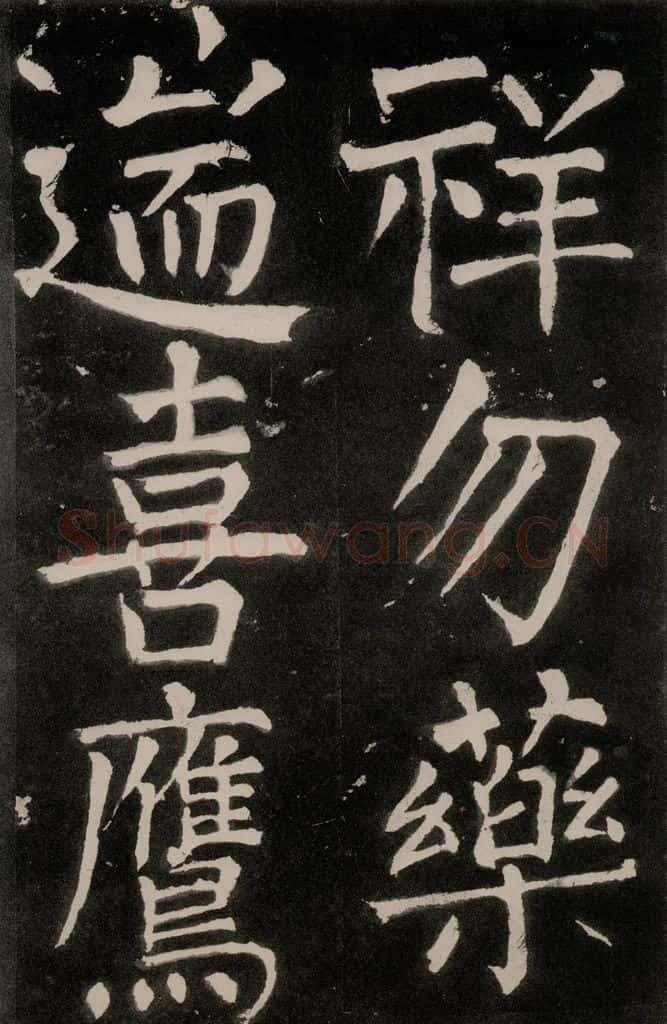 祥勿藥
遄喜鷹
Shufawang.CN